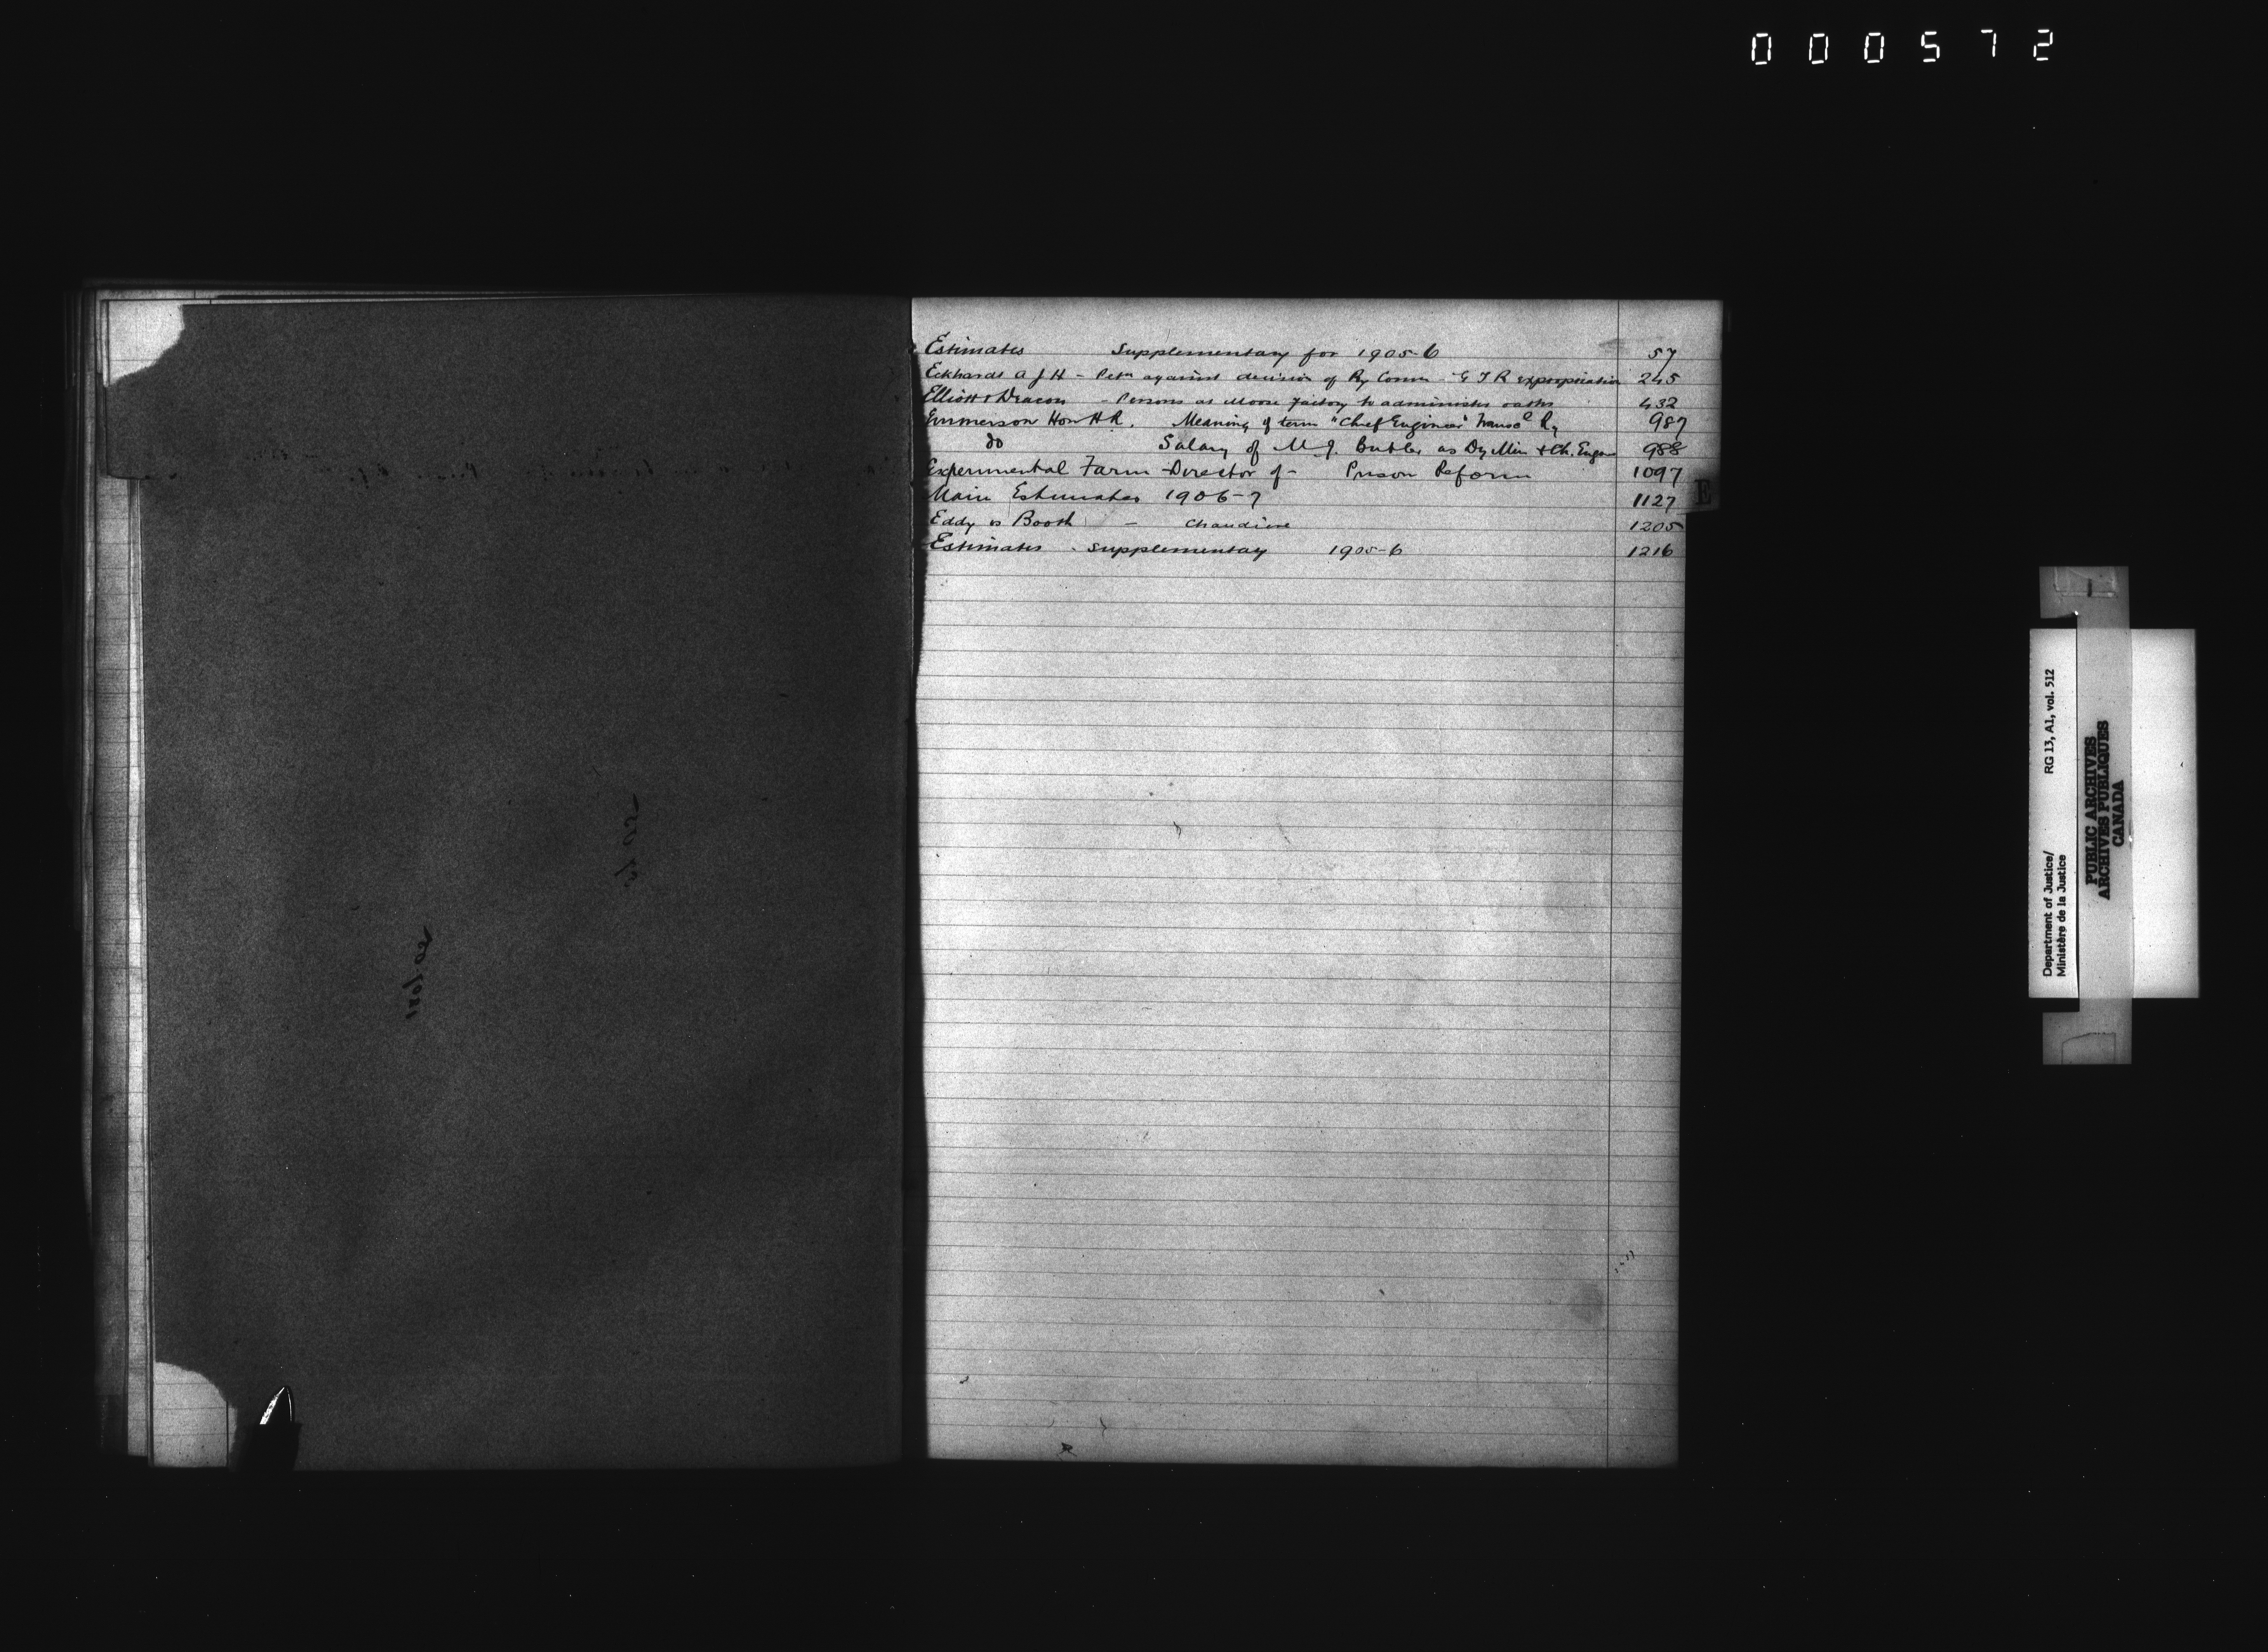 000572
Estimates Supplementary for 1905-6 57
Eckhardt A J H - Petn against decision of Ry Comm - G T R expropriation 245
Elliott & Deacon - Persons at Moose Factory to administer oaths 432
Emmerson Hon H R. Meaning of term "Chief Engineer" Ry 987
do Salary of M. J. Butler as Dy Min & Ch. Engr 988
Experimental Farm - Director of - Prison Reform 1097
Main Estimates 1906-7 1127
Eddy vs Booth - Chaudiere 1205
Estimates - Supplementary 1905-6 1216
E
Department of Justice/ RG 13, A1, vol. 512
Ministère de la Justice
PUBLIC ARCHIVES
ARCHIVES PUBLIQUES
CANADA